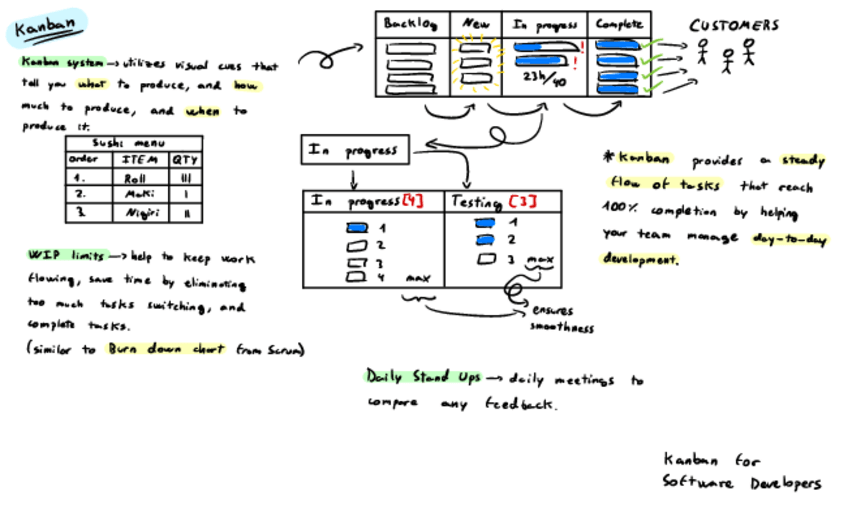 Kanban
Kanban system → utilizes visual cues that
tell you what to produce, and how
much to produce, and when to
produce it.
Sushi menu
order ITEM QTY
1. Roll III
2. Maki I
3. Nigiri II
WIP limits → help to keep work
flowing, save time by eliminating
too much tasks switching, and
complete tasks.
(similar to Burn down chart from Scrum)
Backlog New In progress Complete
! !
23h/40
CUSTOMERS
In progress
In progress[4] Testing [3]
1
2
3
4 max
1
2
3 max
ensures
smoothness
*Kanban provides a steady
flow of tasks that reach
100% completion by helping
your team manage day-to-day
development.
Daily Stand Ups → daily meetings to
compare any feedback.
Kanban for
Software Developers